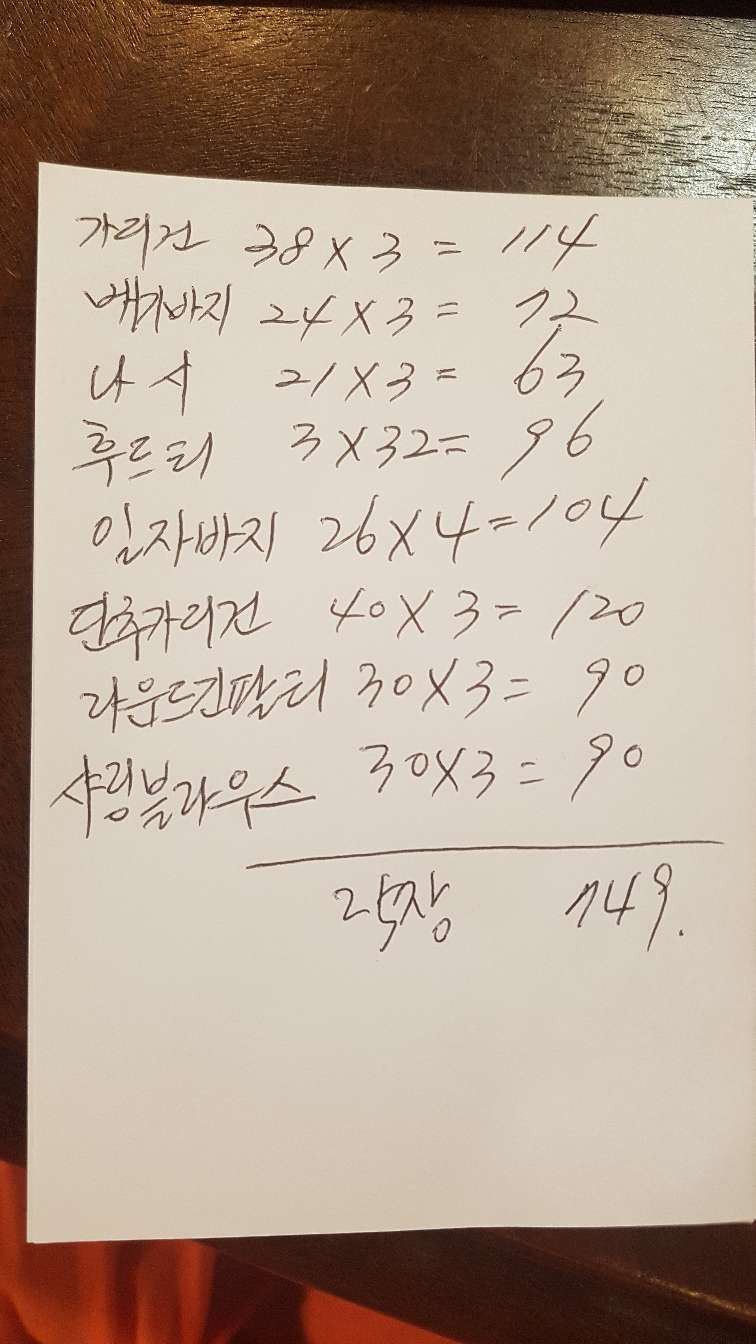 가리건 38 x 3 = 114
베기바지 24 x 3 = 72
나시 21 x 3 = 63
후드티 3 x 32 = 96
일자바지 26 x 4 = 104
단추카리건 40 x 3 = 120
라운드긴팔티 30 x 3 = 90
샤링블라우스 30 x 3 = 90
749.